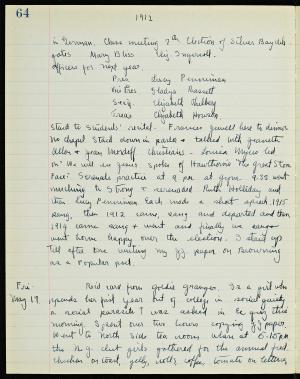 64
1912
in German. Class meeting 7th Election of Silver Bay dele-
gates Mary Bliss Eliz Ingersoll.
officers for next year.
Pres Lucy Penniman
Vice Pres Gladys Bassett
Sec'y. Elizabeth
Treas Elizabeth Howson
Stud to students' recital - Frances Jewell here to dinner
No chapel Stud down in parlor & talked with Granette
Allen & Jean
on "We will
Face". Serenade practice at 9 pm at gym 9.30 went
marching to Strong & serenaded Ruth Holliday and
then Lucy Penniman Each made a short speech 1915
sang, then 1912 came, sang and departed and then
1914 came sang & went and finally we
went home happy over the election. I staid up
till after one writing my paper on Browning
as a Popular poet.
Fri.
May 17.
Red card from Goldie Granger. Is a girl who
spends her first year out of college in social gaiety
a social parasite I was asked in Ec gym this
morning. Spent over two hours copying paper.
Went to North Side tea room where at 6.15 pm
the N.G. club girls gathered for the annual feed.
Chicken on toast, jelly, rolls, coffee, tomato on lettuce,